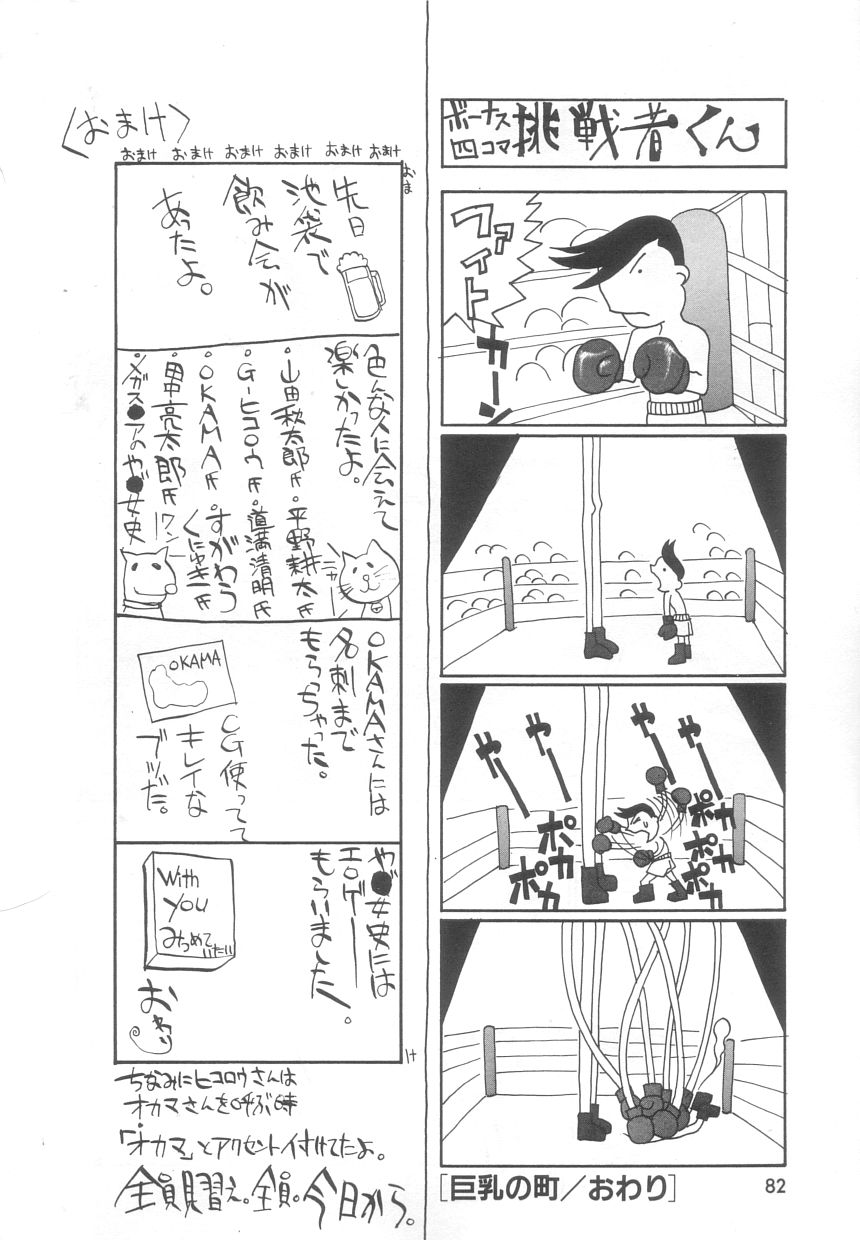 ボーナス
四コマ
挑戦者くん
ファイト
カーン
やー
やー
やー
やー
ポカ
ポカ
ポカ
ポカ
ポカ
[巨乳の町／おわり]
82
〈おまけ〉
おまけ おまけ おまけ おまけ おまけ おまけ
おま
け
先日
池袋で
飲み会が
あったよ。
色んな人に会えて
楽しかったよ。
・山田秋太郎氏・平野耕太氏
・G-ヒコロウ氏・道満清明氏
・OKAMA氏・すがわらくにゆき氏
・田中亮太郎氏
・メガス●アのや●女史
ワン
ニャー
OKAMAさんには
名刺まで
もらっちゃった。
OKAMA
CG使ってて
キレイな
ブツだ。
や●女史には
エロゲー
もらいました。
With
you
みつめて
いたい
おわり
ちなみにヒコロウさんは
オカマさんを呼ぶ時
「オカマ」とアクセント付けてたよ。
全員見習え。全員。今日から。